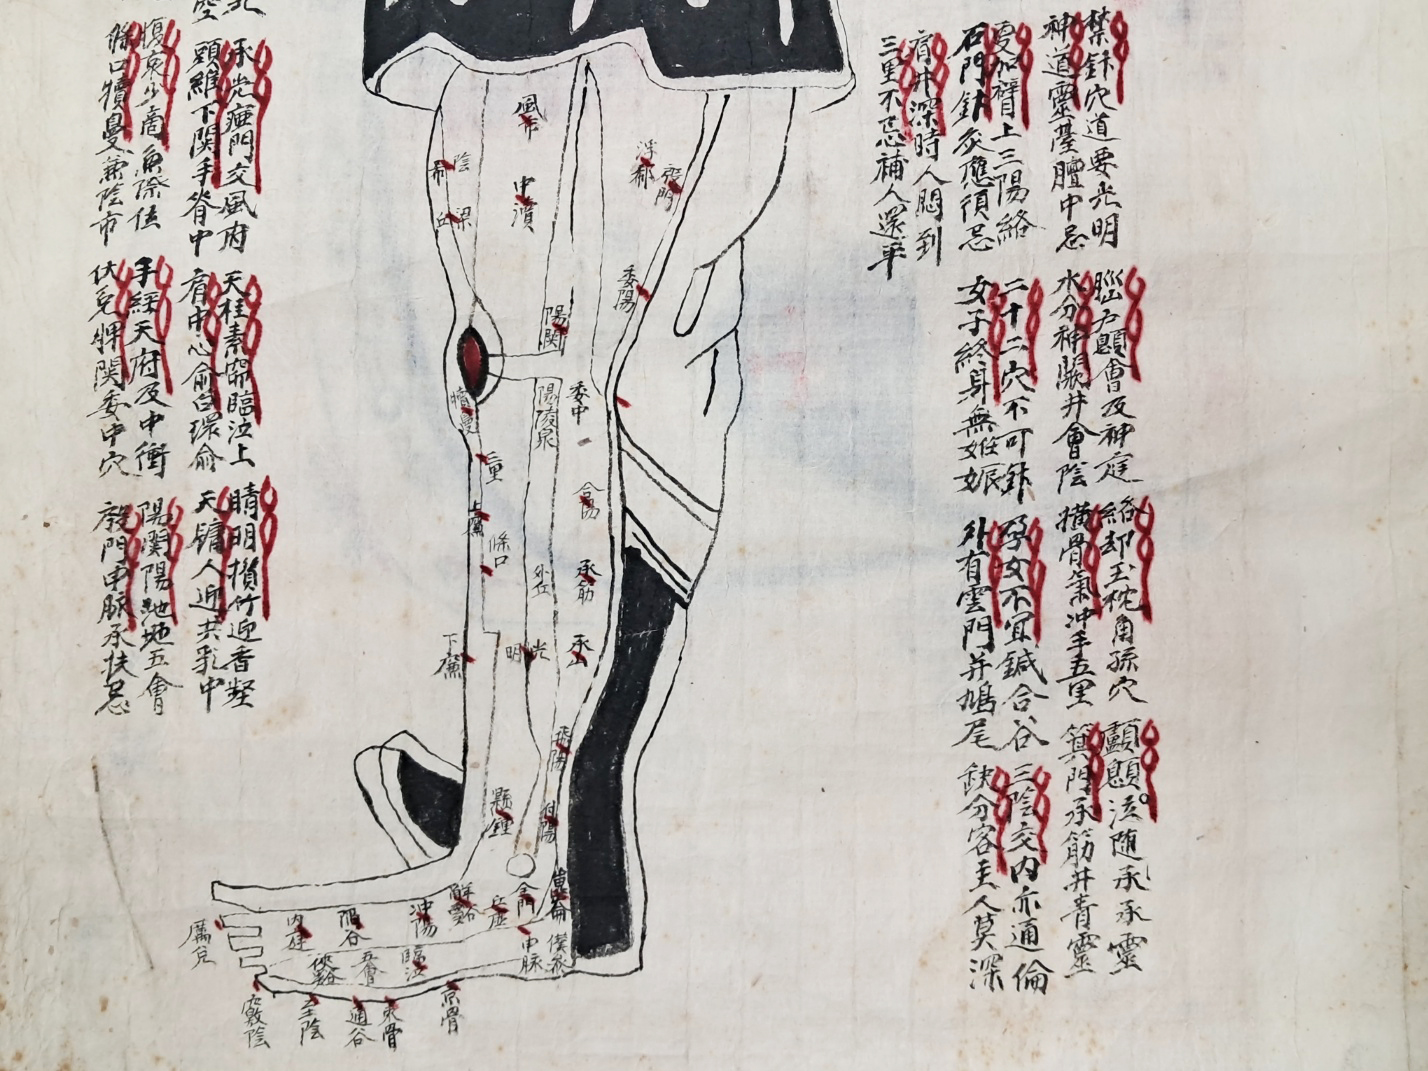 禁針穴道要光明
神道靈臺膻中忌
夏加臂上三陽絡
石門針灸應須忌
肩井深時人悶到
三里不忌補人還平
腦戶顖會及神庭
水分神闕并會陰
二十二穴不可針
女子終身無妊娠
絡却玉枕角孫穴
橫骨氣沖手五里
孕女不宜鍼合谷
外有雲門并鳩尾
顱顖泣随承承靈
箕門承筋并青靈
三陰交內亦通倫
缺分客主人莫深
承光瘂門交風府
頭維下関手脊中
腹哀少商魚際位
條口犢曼兼陰市
天柱素窌臨泣上
肓中心俞白環俞
手經天府及中衝
伏兔髀関委中穴
睛明攅竹迎香整
天髎人迎共乳中
陽関陽池地五會
殷門申脈承扶忌
風市
中瀆
陰市
梁丘
浮郄
殷門
委陽
陽関
陽陵泉
委中
犢曼
三里
合陽
上廉
條口
外丘
承筋
光明
承山
下廉
飛陽
懸鍾
付陽
崑崙
解谿
丘虛
金門
申脈
僕參
沖陽
陷谷
內庭
厲兌
俠谿
五會
臨泣
竅陰
至陰
通谷
束骨
京骨